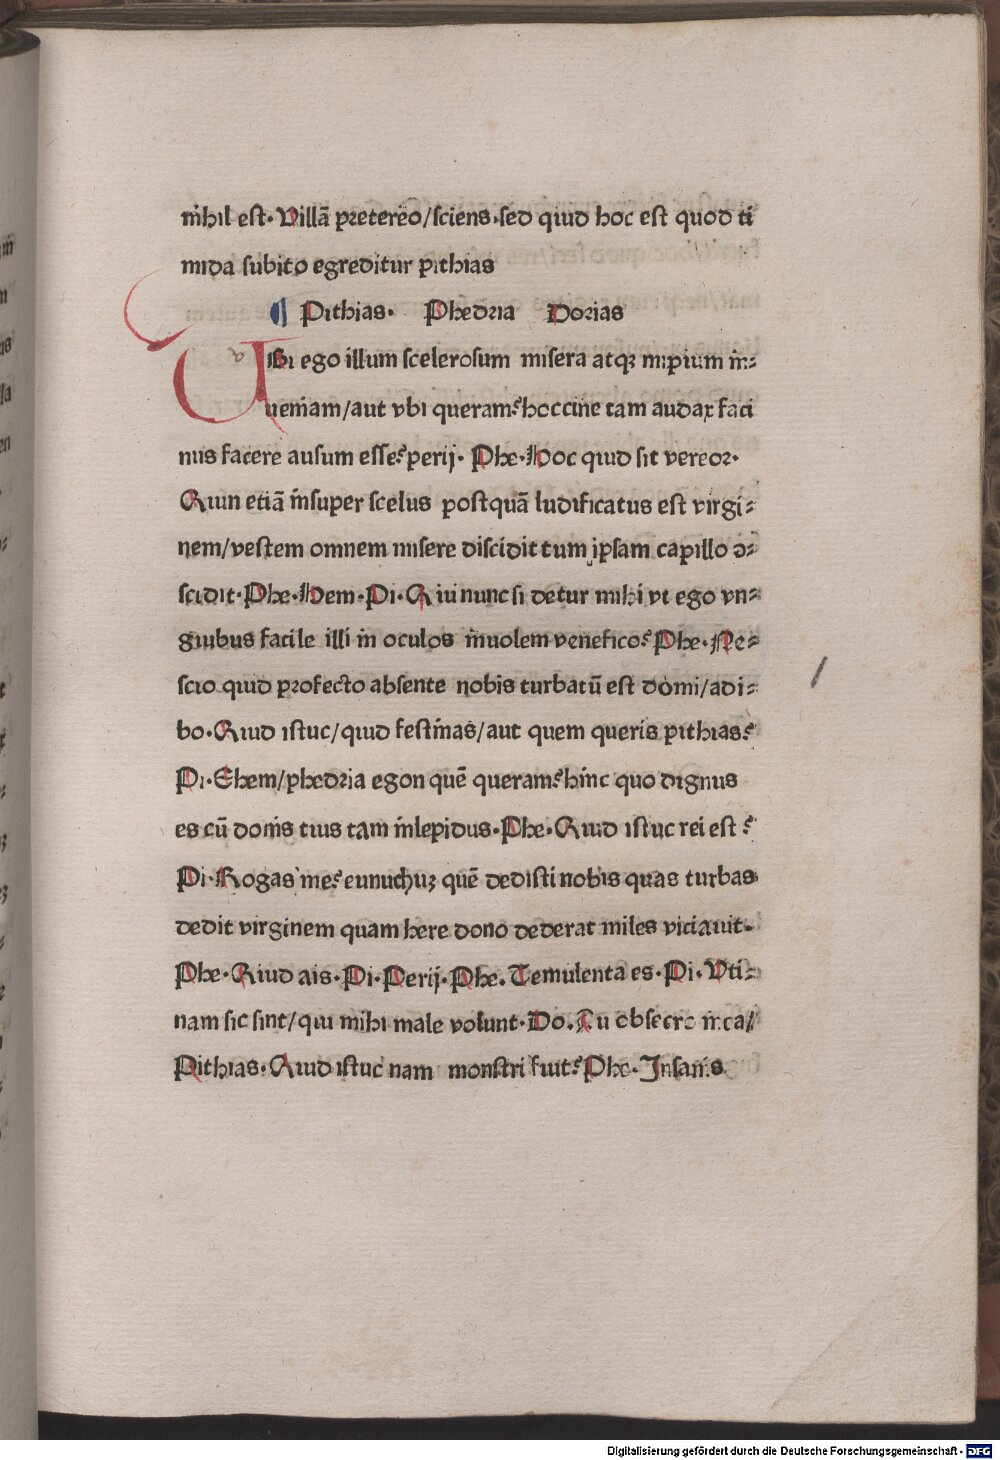 nihil est. Villā pretereo/sciens.sed quid hoc est quod ti
mida subito egreditur pithias
Pithias. Phedria Dorias
VBi ego illum scelerosum misera atqꝫ impium in⸗
ueniam/aut vbi queram?hoccine tam audax faci
nus facere ausum esse?perij. Phe.Hoc quid sit vereor.
Quin etiā insuper scelus postquā ludificatus est virgi⸗
nem/vestem omnem misere discidit tum ipsam capillo ↄ⸗
scidit.Phe.Hem.Pi.Qui nunc si detur mihi vt ego vn⸗
guibus facile illi in oculos inuolem venefico?Phe.Ne⸗
scio quid profecto absente nobis turbatū est domi/adi⸗
bo.Quid istuc/quid festinas/aut quem queris pithias?
Pi.Ehem/phedria egon quē queram?hinc quo dignus
es cū donis tuis tam inlepidus.Phe.Quid istuc rei est?
Pi.Rogas me?eunuchuꝫ quē dedisti nobis quas turbas
dedit virginem quam here dono dederat miles viciauit.
Phe.Quid ais.Pi.Perij.Phe.Temulenta es.Pi.Vti⸗
nam sic sint/qui mihi male volunt.Do.Tu obsecro mea/
Pithias.Quid istuc nam monstri fuit?Phe.Insanis
Digitalisierung gefördert durch die Deutsche Forschungsgemeinschaft - DFG